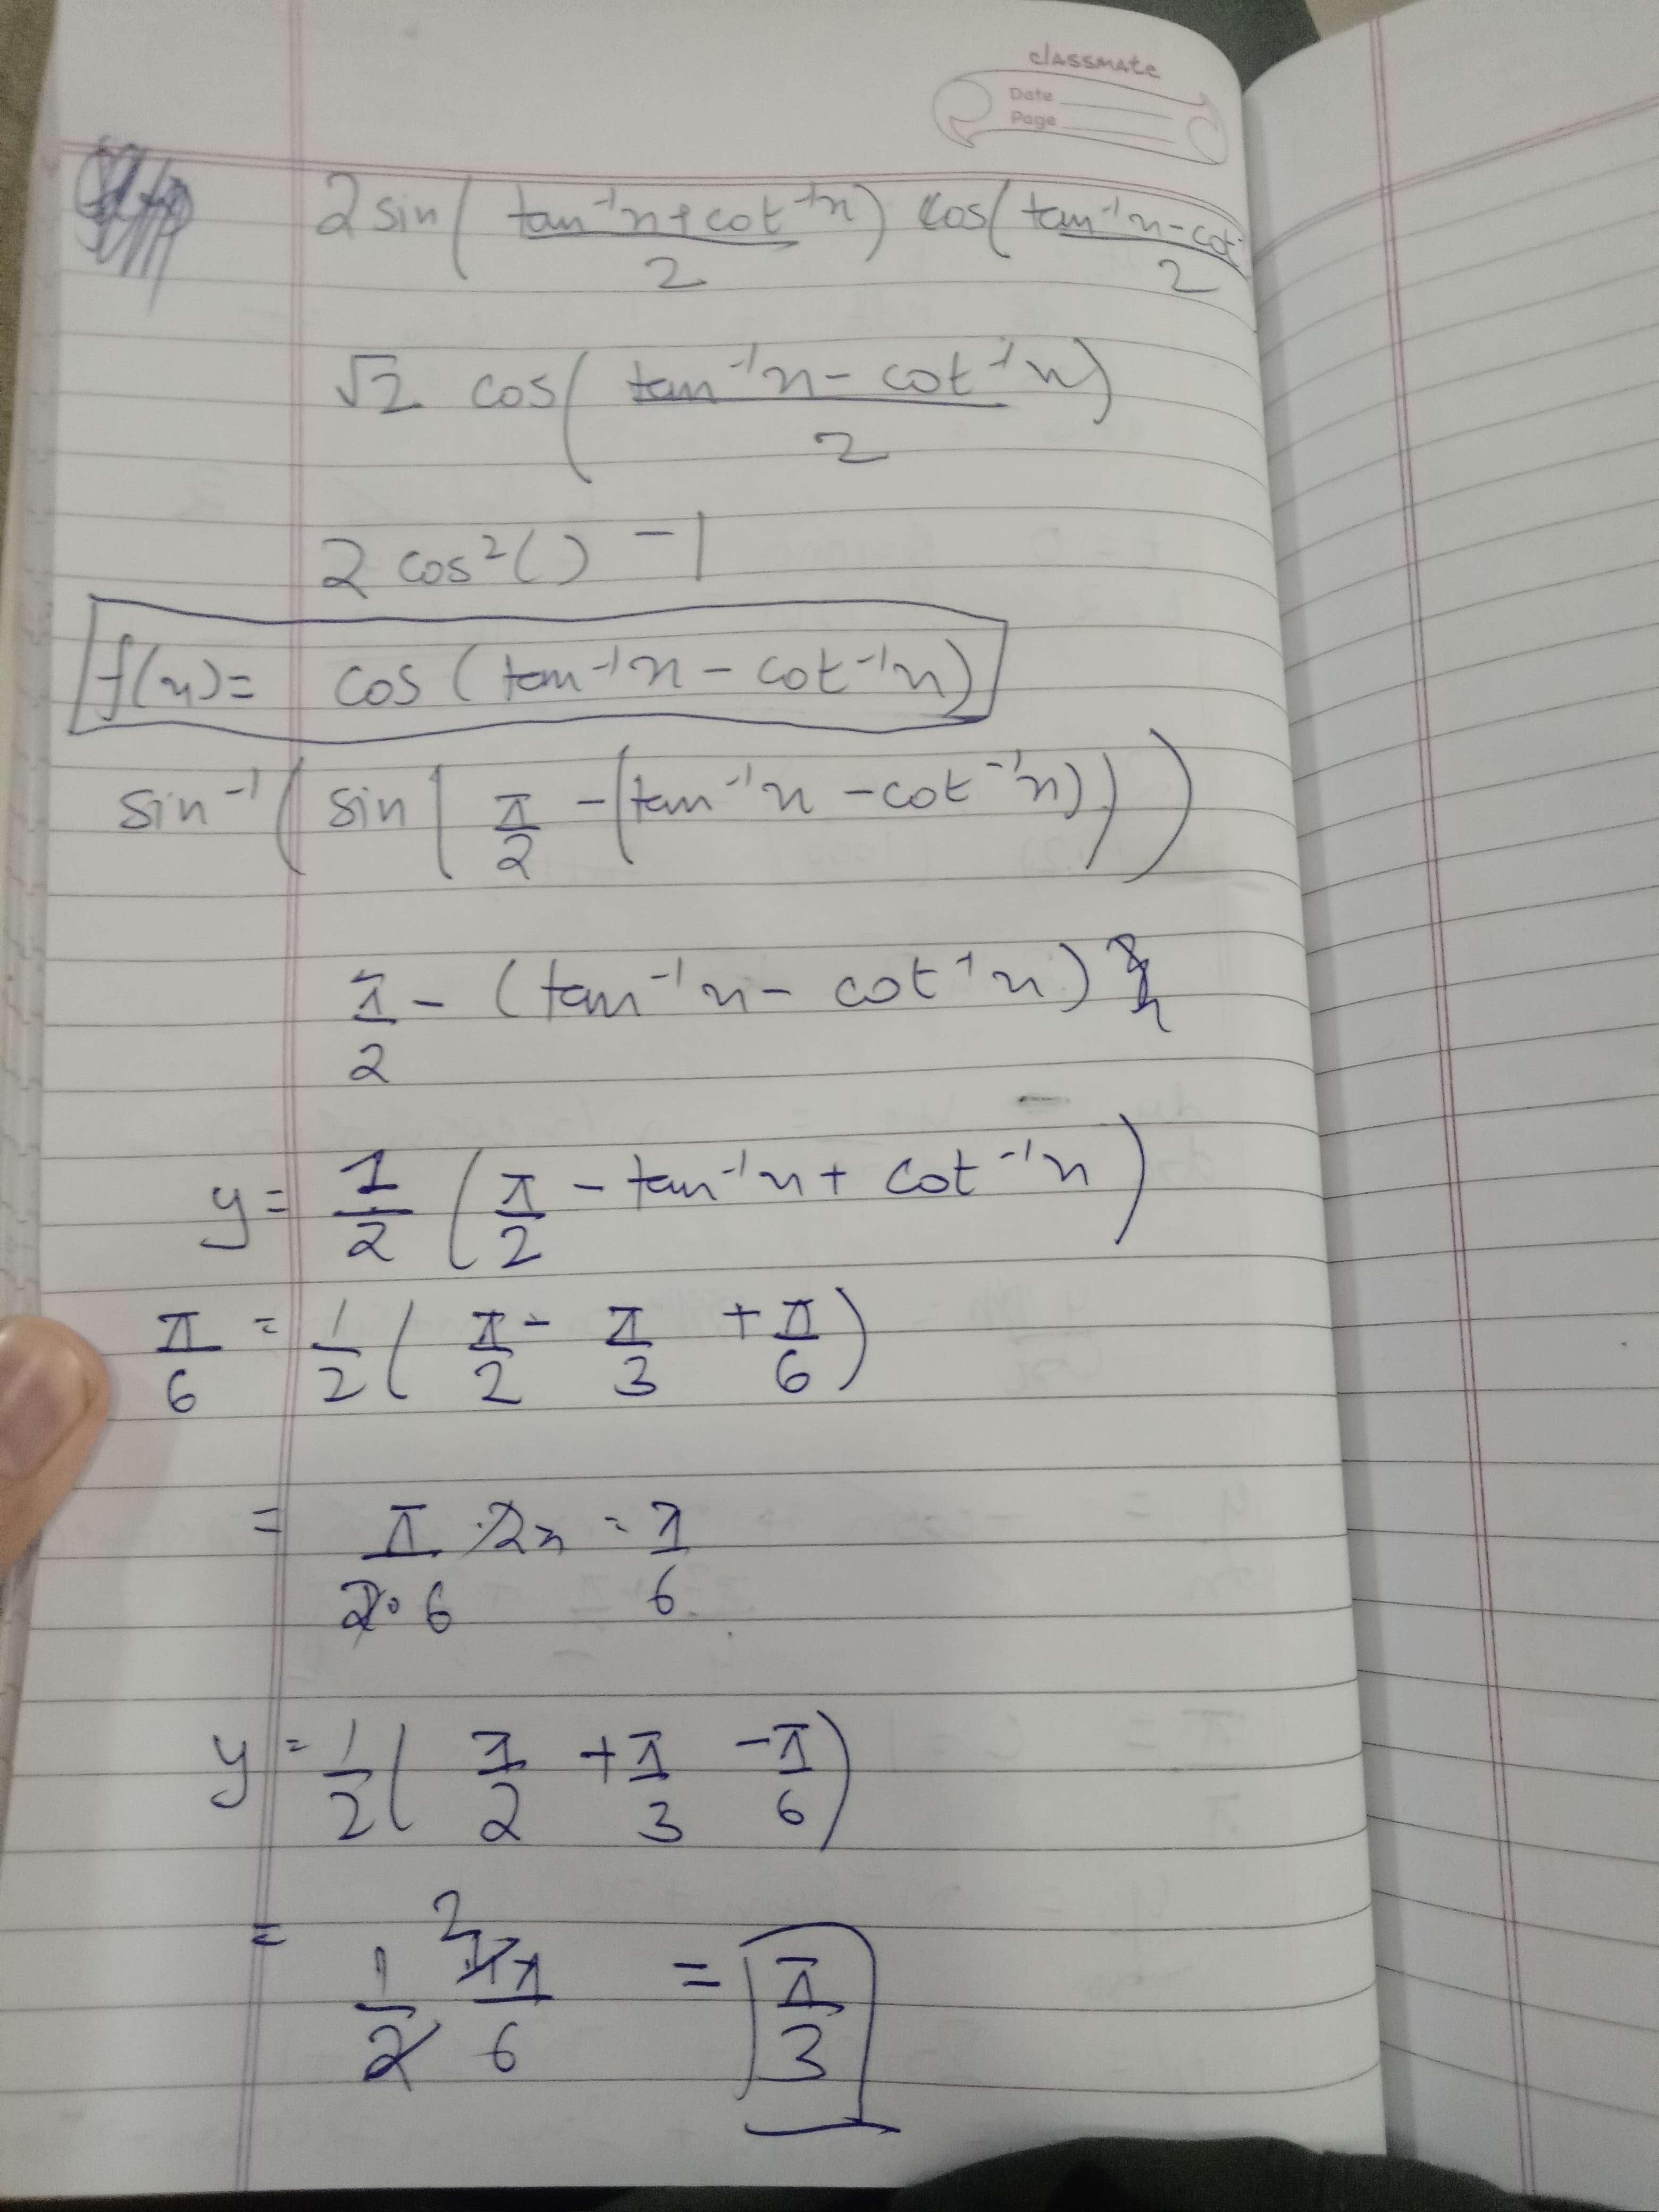 classmate
Date
Page
2 sin( (tan⁻¹x + cot⁻¹x)/2 ) cos( (tan⁻¹x - cot
/2
√2 cos( (tan⁻¹x - cot⁻¹x)/2 )
2 cos²( ) - 1
f(x) = cos (tan⁻¹x - cot⁻¹x)
sin⁻¹( sin( π/2 - (tan⁻¹x - cot⁻¹x) ) )
π/2 - (tan⁻¹x - cot⁻¹x)
y = 1/2 ( π/2 - tan⁻¹x + cot⁻¹x )
π/6 = 1/2 ( π/2 - π/3 + π/6 )
= π/2·6 · 2x = π/6
y = 1/2 ( π/2 + π/3 - π/6 )
= 1/2 π/6 = π/3